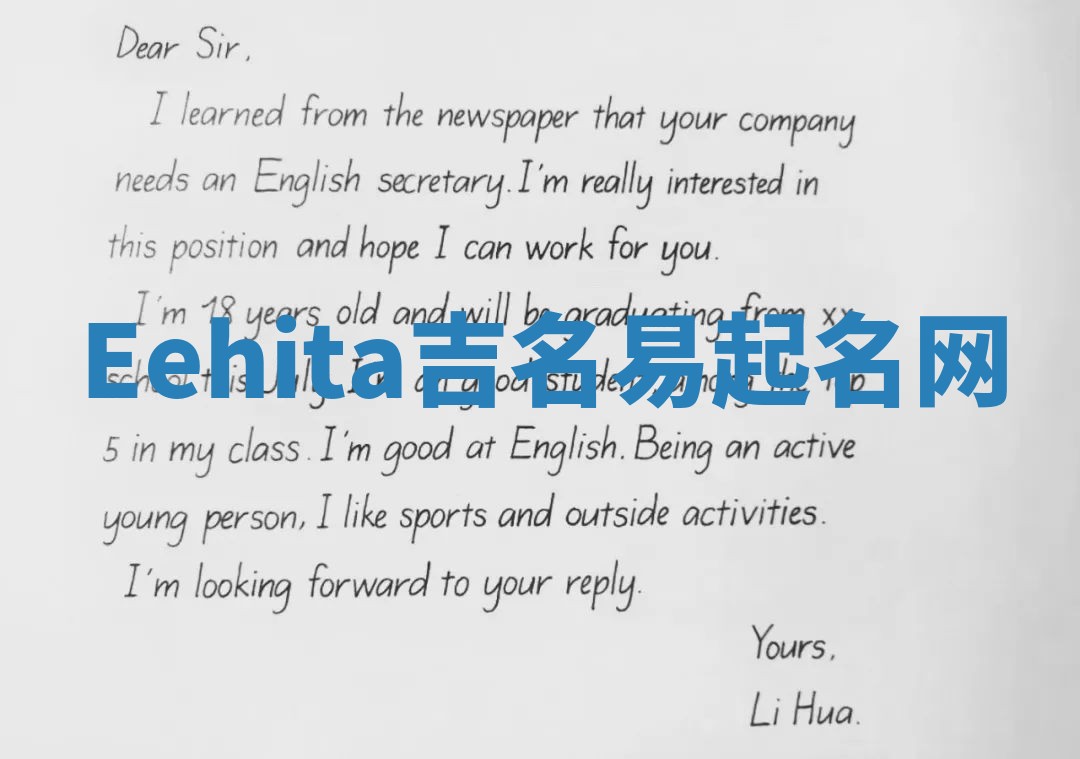 Dear Sir,
I learned from the newspaper that your company
needs an English secretary. I'm really interested in
this position and hope I can work for you.
I'm 18 years old and will be graduating from xx
Eehita吉名易起名网
school this July. I'm a good student among the top
5 in my class. I'm good at English. Being an active
young person, I like sports and outside activities.
I'm looking forward to your reply.
Yours,
Li Hua.